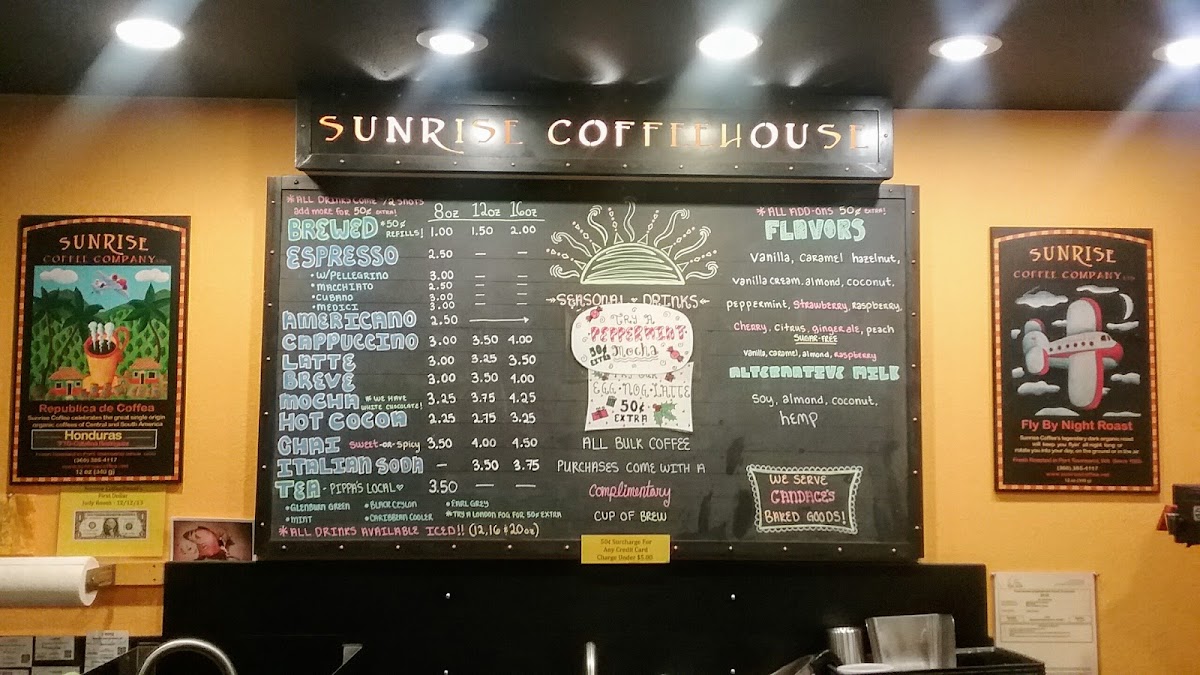 SUNRISE COFFEEHOUSE
*ALL DRINKS COME W/2 SHOTS
add more for 50¢ EXTRA!
8oz 12oz 16oz
BREWED *50¢ REFILLS! 1.00 1.50 2.00
ESPRESSO 2.50 — —
• W/PELLEGRINO 3.00 — —
• MACCHIATO 2.50 — —
• CUBANO 3.00 — —
• MEDICI 3.00 — —
AMERICANO 2.50 →
CAPPUCCINO 3.00 3.50 4.00
LATTE 3.00 3.25 3.50
BREVE 3.00 3.50 4.00
MOCHA *WE HAVE WHITE CHOCOLATE! 3.25 3.75 4.25
HOT COCOA 2.25 2.75 3.25
CHAI SWEET-OR-SPICY 3.50 4.00 4.50
ITALIAN SODA — 3.50 3.75
TEA - PIPPA'S LOCAL ♥ 3.50 — —
• GLENBURN GREEN • BLACK CEYLON • EARL GREY
• MINT • CARIBBEAN COOLER *TRY A LONDON FOG FOR 50¢ EXTRA
*ALL DRINKS AVAILABLE ICED!! (12, 16 & 20oz)
SEASONAL ♥ DRINKS
TRY A
PEPPERMINT
50¢ EXTRA Mocha
EGG·NOG·LATTE
50¢
EXTRA
ALL BULK COFFEE
PURCHASES COME WITH A
complimentary
CUP OF BREW
50¢ Surcharge For
Any Credit Card
Charge Under $5.00
*ALL ADD-ONS 50¢ EXTRA!
FLAVORS
Vanilla, caramel hazelnut,
vanilla cream, almond, coconut,
peppermint, strawberry, raspberry,
cherry, citrus, ginger ale, peach
SUGAR-FREE
vanilla, caramel, almond, raspberry
ALTERNATIVE MILK
soy, almond, coconut,
hemp
WE SERVE
CANDACE'S
BAKED GOODS!
SUNRISE
COFFEE COMPANY
Republica de Coffea
Sunrise Coffee celebrates the great single origin
organic coffees of Central and South America
Honduras
(360) 385-4117
12 oz (340 g)
First Dollar
SUNRISE
COFFEE COMPANY
Fly By Night Roast
Sunrise Coffee's legendary dark organic roast
will keep you flyin' all night long or
rotate you into your day, on the ground or in the air
(360) 385-4117